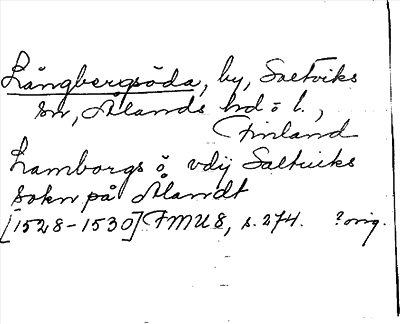 Långbergsöda, by, Saltviks
sn, Ålands hd o l.,
Finland
Lamborgs ö vdij Saltuiks
sokn på Ålandt
[1528-1530] FMU 8, s. 274. ? orig.